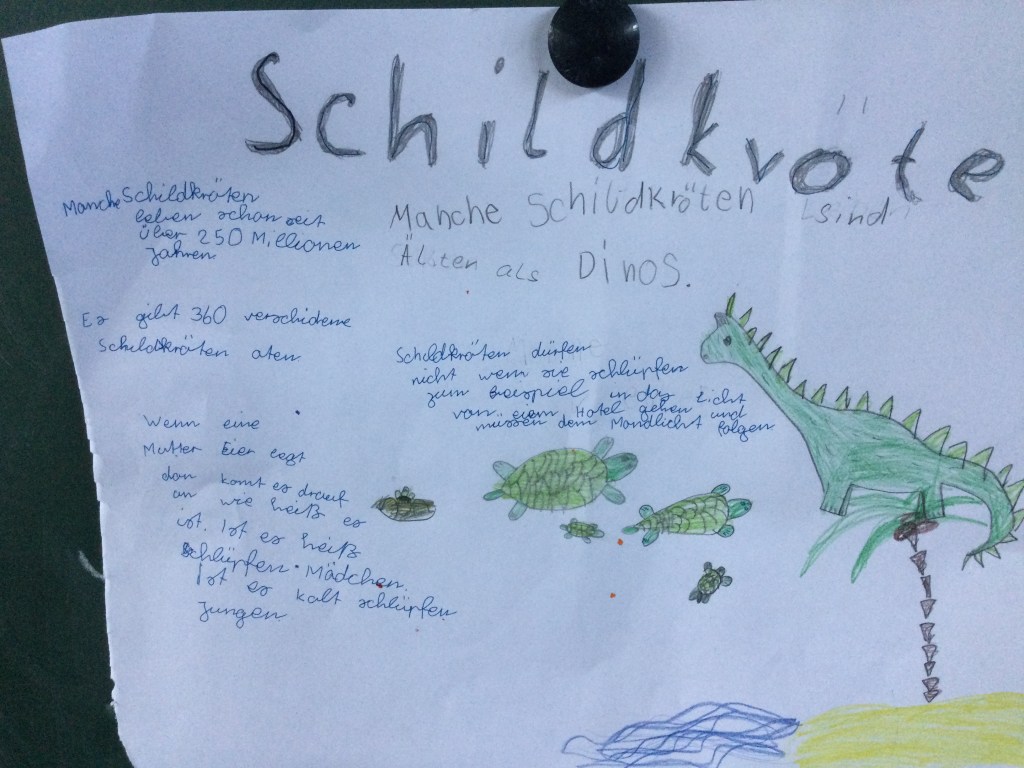 Schildkröte
Manche Schildkröten
leben schon seit
über 250 Millionen
Jahren
Manche Schildkröten sind
Älsten als Dinos.
Es gibt 360 verschidene
Schildkröten aten
Schildkröten dürfen
nicht wenn sie schlüpfen
zum Beispiel in das Licht
von eiem Hotel gehen und
müssen dem Mondlicht folgen
Wenn eine
Mutter Eier legt
dan komt es drauf
an wie heiß es
ist. Ist es heiß
schlüpfen Mädchen.
Ist es kalt schlüpfen
Jungen